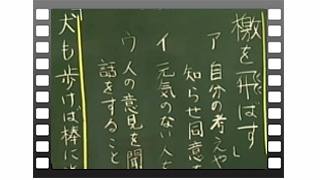 檄を飛ばす
ア 自分の考えや
知らせ同意を
イ 元気のない人
ウ 人の意見を聞
話をすること
犬も歩けば棒に